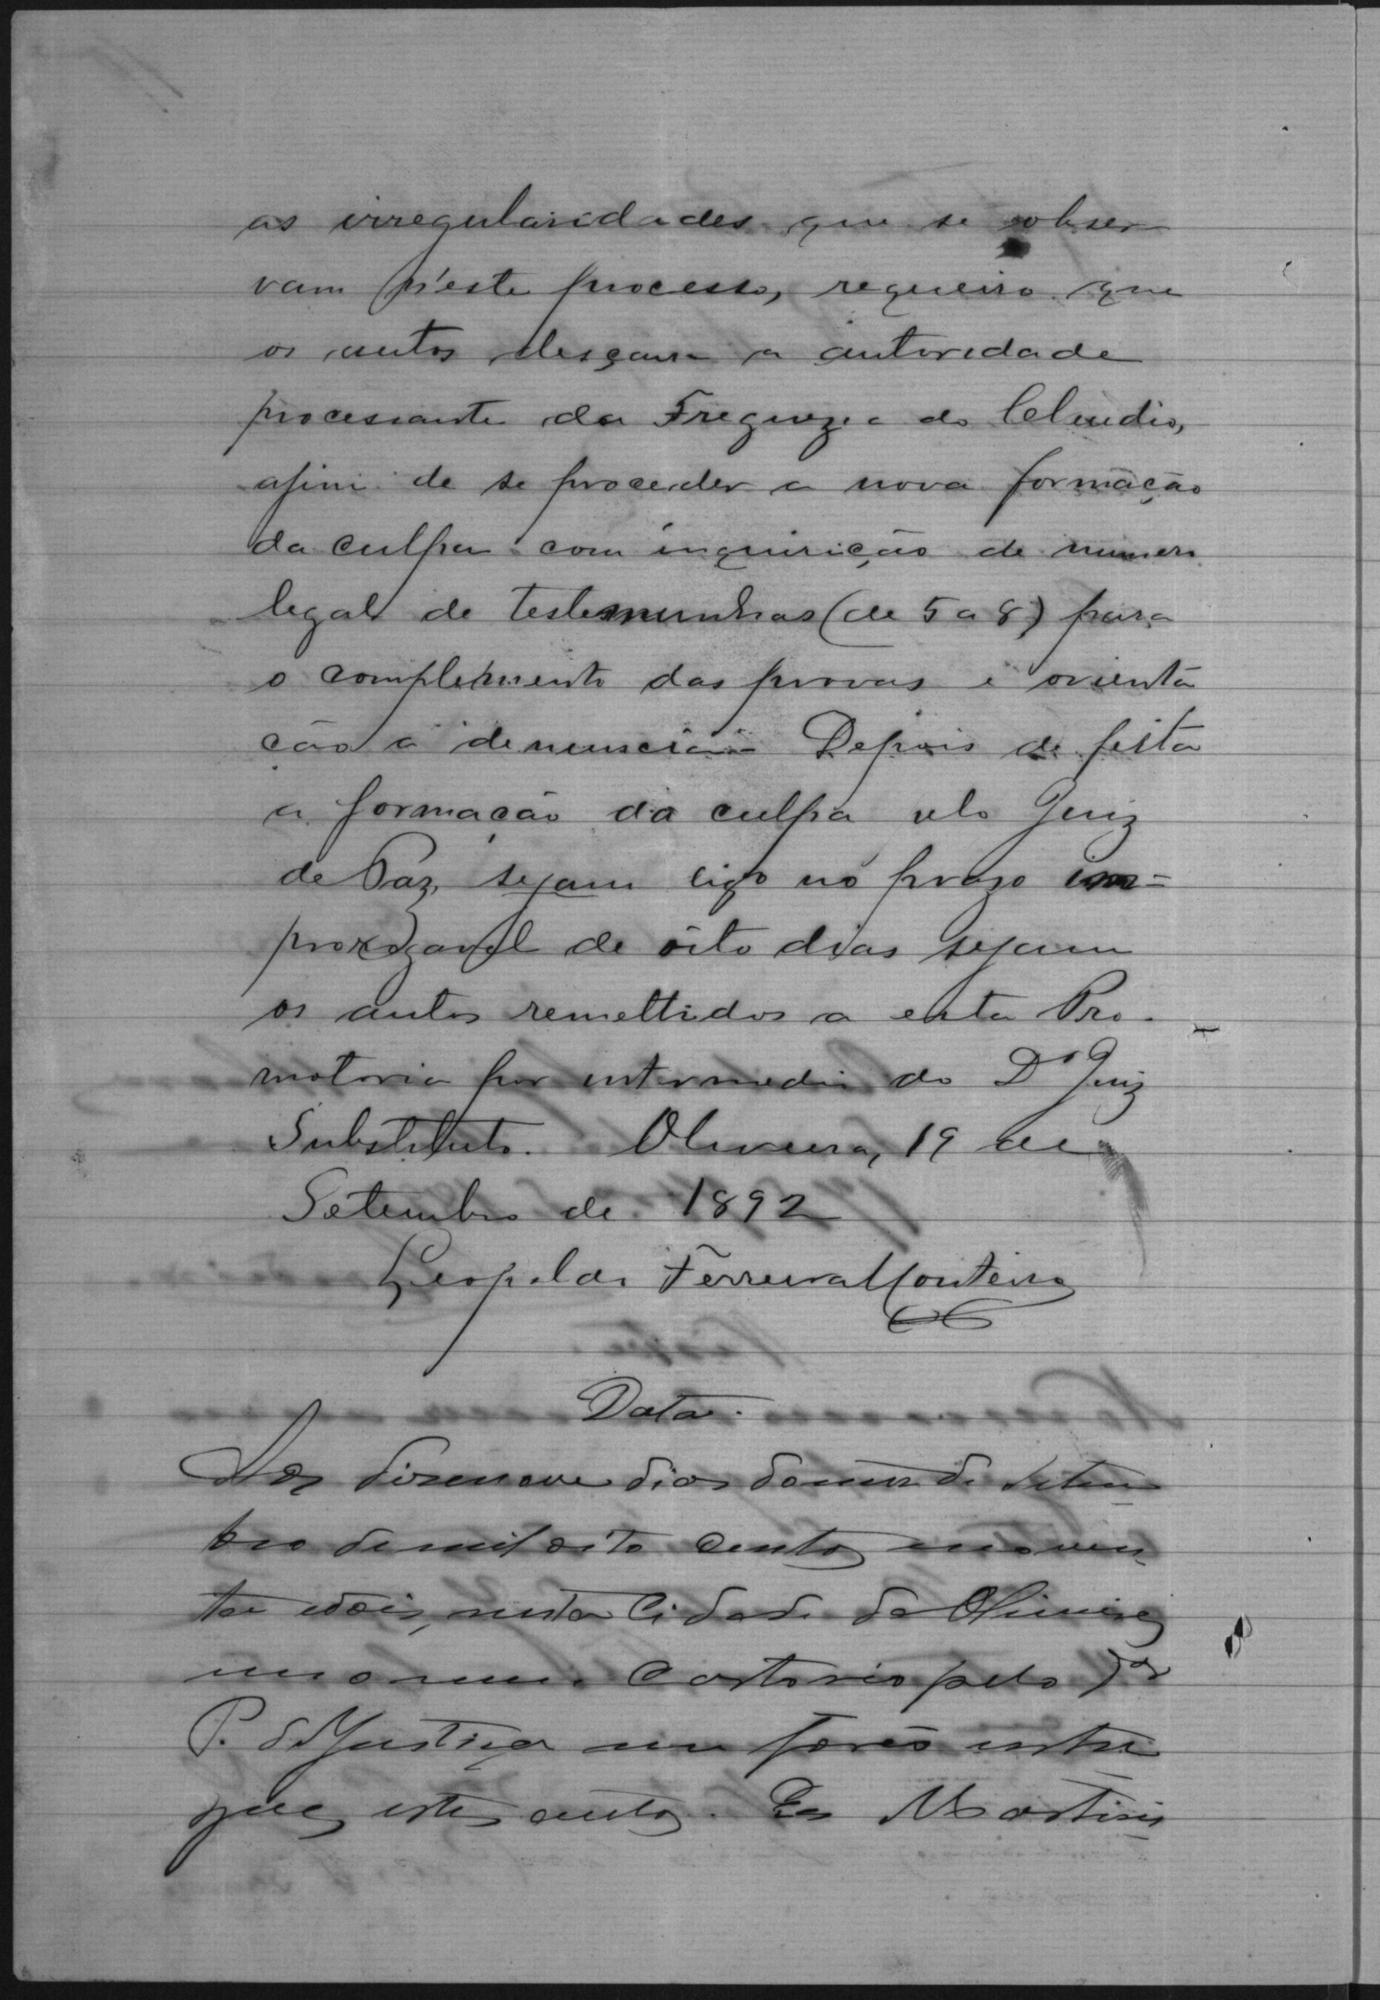 as irregularidades que se obser
vam n'este processo, requeiro que
os autos desçam a autoridade
processante da Freguezia do Claudio,
afim de se proceder a nova formação
da culpa com inquirição de numero
legal de testemunhas (de 5 a 8) para
o complemento das provas e orienta
ção a denuncia. Depois de feita
a formação da culpa pelo Juiz
de Paz, sejam digo no prazo im=
prorogavel de oito dias sejam
os autos remettidos a esta Pro-
motoria por intermedio do Dr Juiz
Substituto. Oliveira, 19 de
Setembro de 1892
Leopoldo Ferreira Monteiro
Data.
Aos dezenove dias do mez de Setem
bro de mil oito centos e noven
ta e dois, nesta Cidade de Oliveira
em o meu Cartorio pelo Dor
P. de Justiça me forão entre
gues estes autos. Eu Martins